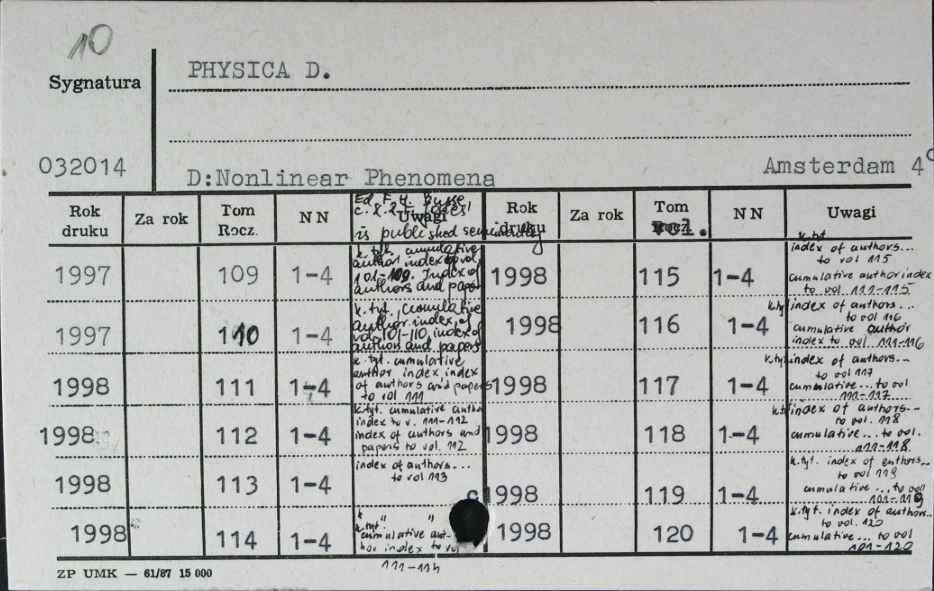 10
Sygnatura
PHYSICA D.
032014
D:Nonlinear Phenomena
Amsterdam 4°
Rok druku
Za rok
Tom Rocz.
N N
Uwagi
Rok druku
Za rok
Tom
vol.
N N
Uwagi
Ed. F. H. Busse
is published
1997 109 1-4
k. tyt. cumulative
author index to vol.
101-109. Index of
authors and paper
1997 110 1-4
k. tyt. cumulative
author index of
vol. 101-110, index of
authors and papers
1998 111 1-4
k. tyt. cumulative
author index index
of authors and papers
to vol 111
1998 112 1-4
k. tyt. cumulative autho
index to v. 111-112
index of authors and
papers to vol. 112
1998 113 1-4
index of authors...
to vol 113
1998 114 1-4
k. tyt. " "
cumulative aut-
hor index to vol
111-114
1998 115 1-4
k. tyt.
index of authors...
to vol 115
cumulative author index
to vol 111-115
1998 116 1-4
k. tyt. index of authors...
to vol 116
cumulative author
index to vol. 111-116
1998 117 1-4
k. tyt. index of authors...
to vol 117
cumulative... to vol
111-117
1998 118 1-4
k. tyt. index of authors...
to vol. 118
cumulative... to vol.
111-118.
1998 119 1-4
k. tyt. index of authors...
to vol 119
cumulative ... to vol
101-119
1998 120 1-4
k. tyt. index of authors...
to vol. 120
cumulative... to vol
101-120
ZP UMK — 61/87 15 000